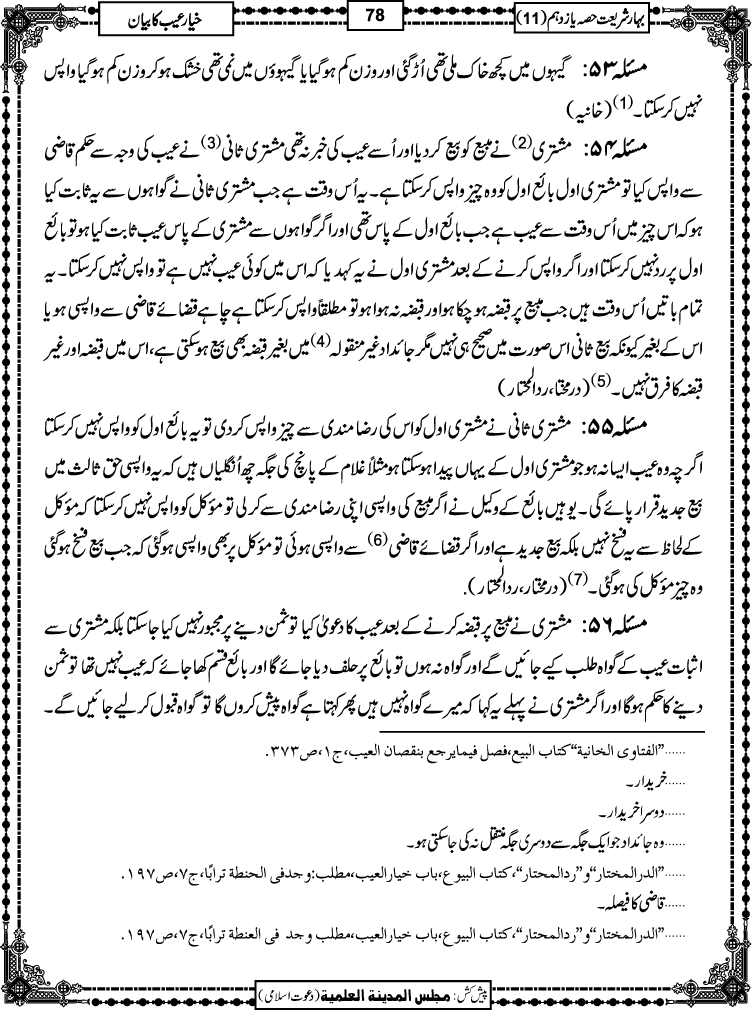 بہار شریعت حصہ یازدہم (11)
78
خیار عیب کا بیان
مسئلہ ۵۳: گیہوں میں کچھ خاک ملی تھی اُڑ گئی اور وزن کم ہوگیا یا گیہوؤں میں نمی تھی خشک ہوکر وزن کم ہوگیا واپس
نہیں کرسکتا۔(1) (خانیہ)
مسئلہ ۵۴: مشتری(2)نے مبیع کو بیع کر دیا اور اُسے عیب کی خبر نہ تھی مشتری ثانی(3)نے عیب کی وجہ سے حکم قاضی
سے واپس کیا تو مشتری اول بائع اول کو وہ چیز واپس کرسکتا ہے۔ یہ اُس وقت ہے جب مشتری ثانی نے گواہوں سے یہ ثابت کیا
ہو کہ اس چیز میں اُس وقت سے عیب ہے جب بائع اول کے پاس تھی اور اگر گواہوں سے مشتری کے پاس عیب ثابت کیا ہو تو بائع
اول پر رد نہیں کرسکتا اور اگر واپس کرنے کے بعد مشتری اول نے یہ کہدیا کہ اس میں کوئی عیب نہیں ہے تو واپس نہیں کرسکتا۔ یہ
تمام باتیں اُس وقت ہیں جب مبیع پر قبضہ ہو چکا ہو اور قبضہ نہ ہوا ہو تو مطلقاً واپس کرسکتا ہے چاہے قضائے قاضی سے واپسی ہو یا
اس کے بغیر کیونکہ بیع ثانی اس صورت میں صحیح ہی نہیں مگر جائداد غیر منقولہ(4)میں بغیر قبضہ بھی بیع ہوسکتی ہے، اس میں قبضہ اور غیر
قبضہ کا فرق نہیں۔(5) (درمختا، ردالمحتار)
مسئلہ ۵۵: مشتری ثانی نے مشتری اول کو اس کی رضا مندی سے چیز واپس کردی تو یہ بائع اول کو واپس نہیں کرسکتا
اگرچہ وہ عیب ایسا نہ ہو جو مشتری اول کے یہاں پیدا ہوسکتا ہو مثلاً غلام کے پانچ کی جگہ چھ اُنگلیاں ہیں کہ یہ واپسی حق ثالث میں
بیع جدید قرار پائے گی۔ یوہیں بائع کے وکیل نے اگر مبیع کی واپسی اپنی رضا مندی سے کرلی تو مؤکل کو واپس نہیں کرسکتا کہ مؤکل
کے لحاظ سے یہ فسخ نہیں بلکہ بیع جدید ہے اور اگر قضائے قاضی(6)سے واپسی ہوئی تو مؤکل پر بھی واپسی ہوگئی کہ جب بیع فسخ ہوگئی
وہ چیز مؤکل کی ہوگئی۔(7) (درمختار، ردالمحتار).
مسئلہ ۵۶: مشتری نے مبیع پر قبضہ کرنے کے بعد عیب کا دعویٰ کیا تو ثمن دینے پر مجبور نہیں کیا جاسکتا بلکہ مشتری سے
اثبات عیب کے گواہ طلب کیے جائیں گے اور گواہ نہ ہوں تو بائع پر حلف دیا جائے گا اور بائع قسم کھا جائے کہ عیب نہیں تھا تو ثمن
دینے کا حکم ہوگا اور اگر مشتری نے پہلے یہ کہا کہ میرے گواہ نہیں ہیں پھر کہتا ہے گواہ پیش کروں گا تو گواہ قبول کرلیے جائیں گے۔
......”الفتاوی الخانیة“ کتاب البیع،فصل فیما یرجع بنقصان العیب،ج۱،ص۳۷۳.
......خریدار۔
......دوسرا خریدار۔
......وہ جائداد جو ایک جگہ سے دوسری جگہ منتقل نہ کی جاسکتی ہو۔
......”الدرالمختار“و”ردالمحتار“،کتاب البیوع،باب خیارالعیب،مطلب:وجدفی الحنطة ترابًا،ج۷،ص۱۹۷.
......قاضی کا فیصلہ۔
......”الدرالمختار“و”ردالمحتار“،کتاب البیوع،باب خیارالعیب،مطلب وجد فی العنطة ترابًا،ج۷،ص۱۹۷.
پیش کش: مجلس المدینة العلمیة (دعوت اسلامی)